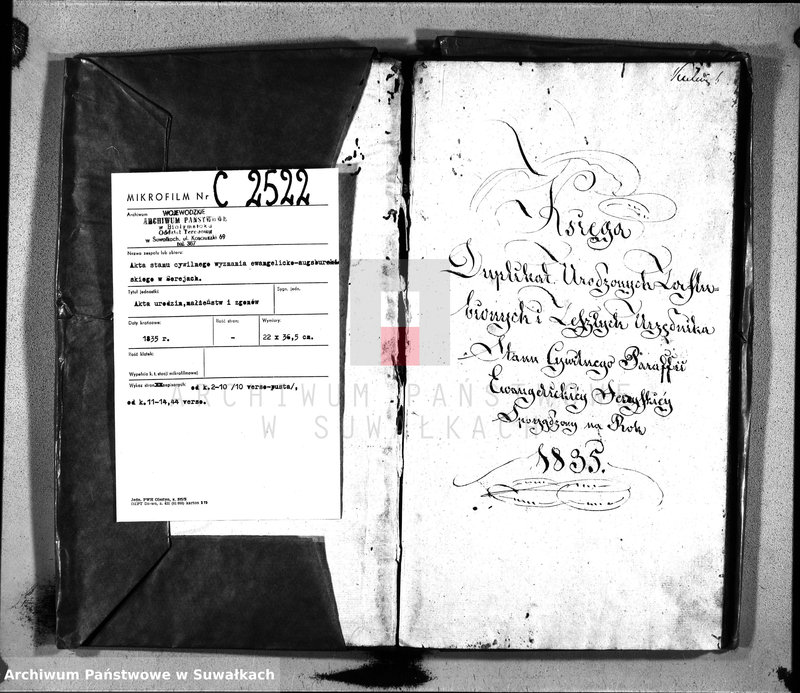 MIKROFILM Nr C 2522
Archiwum
WOJEWÓDZKIE
ARCHIWUM PAŃSTWOWE
w Białymstoku
Oddział Terenowy
w Suwałkach, ul. Kościuszki 69
tel. 367
Nazwa zespołu lub zbioru:
Akta stanu cywilnego wyznania ewangelicko-augsburskie
skiego w Serejach.
Tytuł jednostki:
Sygn. jedn.
Akta urodzin,małżeństw i zgonów
Daty krańcowe:
Ilość stron:
Wymiary:
1835 r.
-
22 x 36,5 cm.
Ilość klatek:
Wypełnia k. t. stacji mikrofilmowej
Wykaz stron zapisanych: od k.2-10 /10 verso-pusta/,
od k.11-14,44 verso.
Księga
Duplikat Urodzonych Zaślu-
bionych i Zeszłych Urzędnika
Stanu Cywilnego Paraffii
Ewangelickiey Sereyskiéy
Sporządzony na Rok
1835.
ARCHIWUM PAŃSTWOWE
W SUWAŁKACH
Archiwum Państwowe w Suwałkach